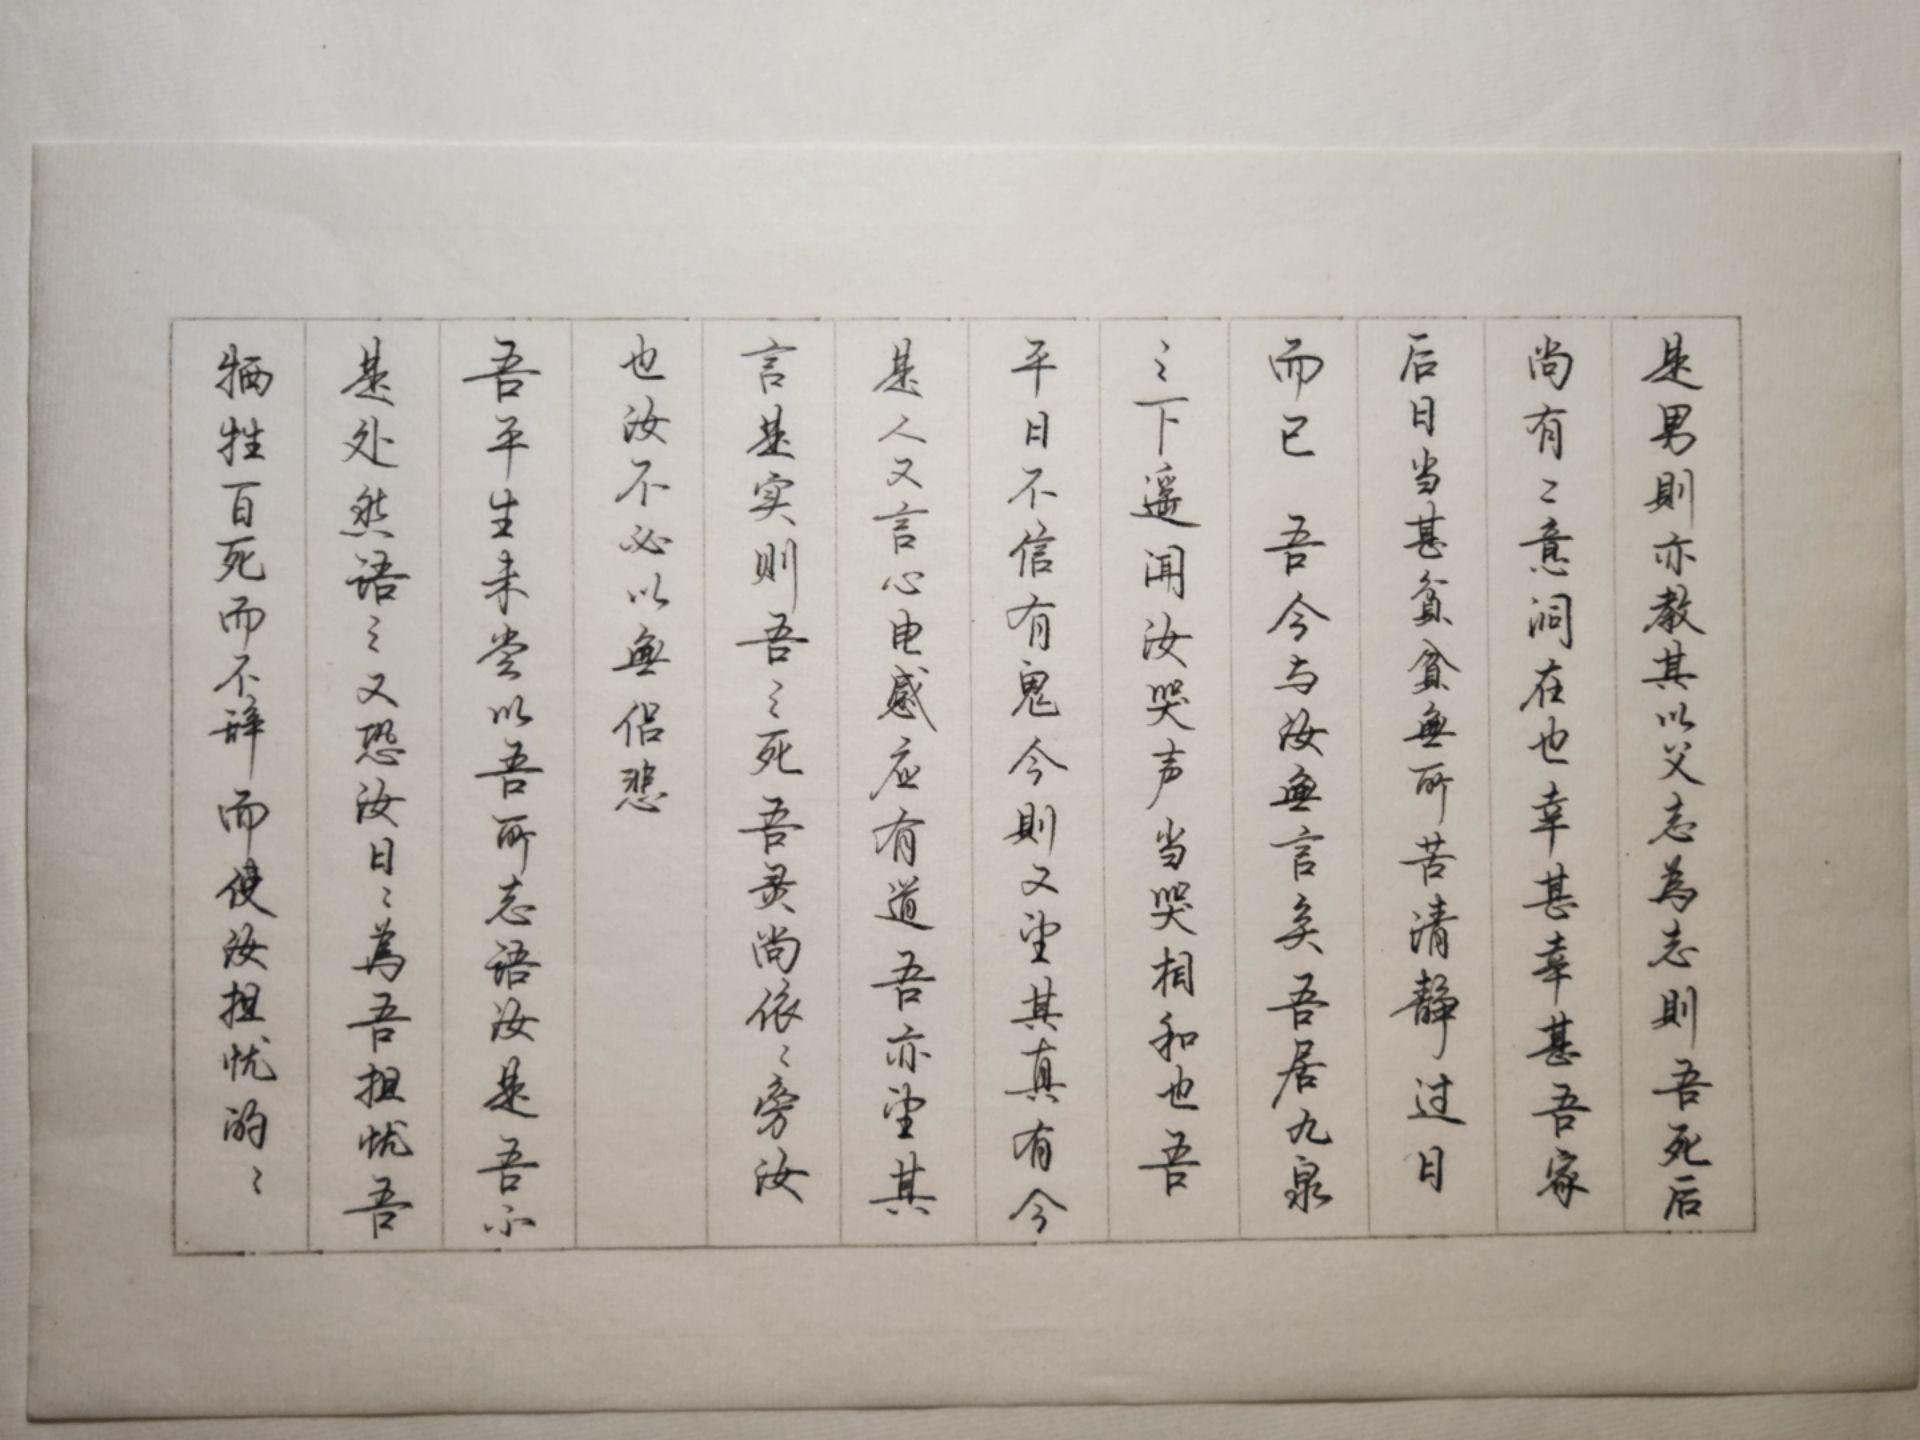 是男则亦教其以父志為志则吾死后
尚有二意洞在也幸甚幸甚吾家
后日当甚貧貧無所苦清静过日
而已 吾今与汝無言矣吾居九泉
之下遥闻汝哭声当哭相和也吾
平日不信有鬼今则又望其真有今
是人又言心电感应有道吾亦望其
言是实则吾之死吾灵尚依〻旁汝
也汝不必以無侣悲
吾平生未尝以吾所志语汝是吾不
是处然语之又恐汝日〻為吾担忧吾
牺牲百死而不辞而使汝担忧的〻